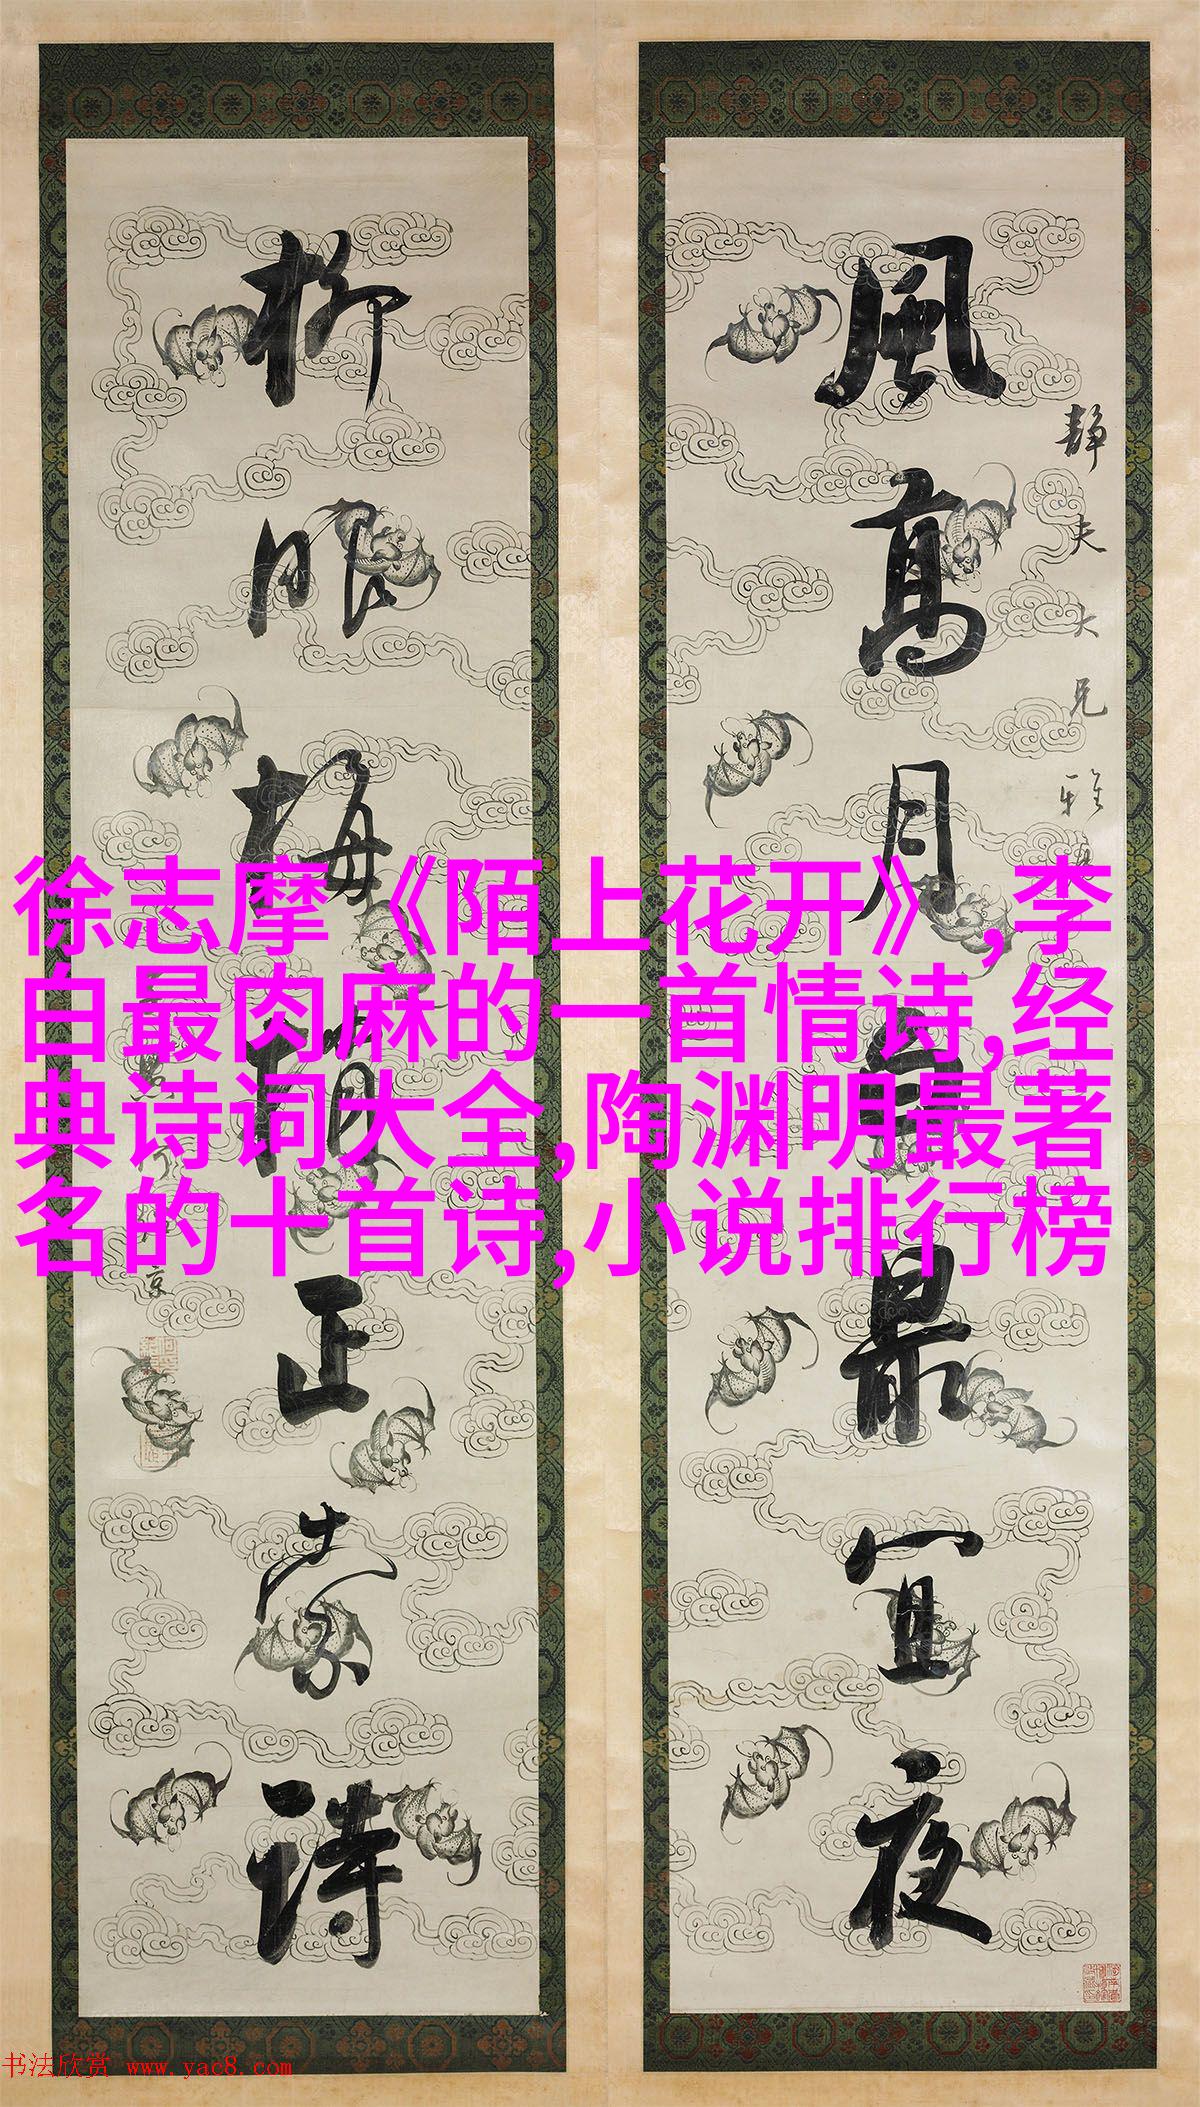 靜夫大兄雅
風高月白最宜夜
柳眼梅梢正索詩
徐志摩《陌上花开》,李
白最肉麻的一首情诗,经
典诗词大全,陶渊明最著
名的十首诗,小说排行榜
书法欣赏 www.yac8.com